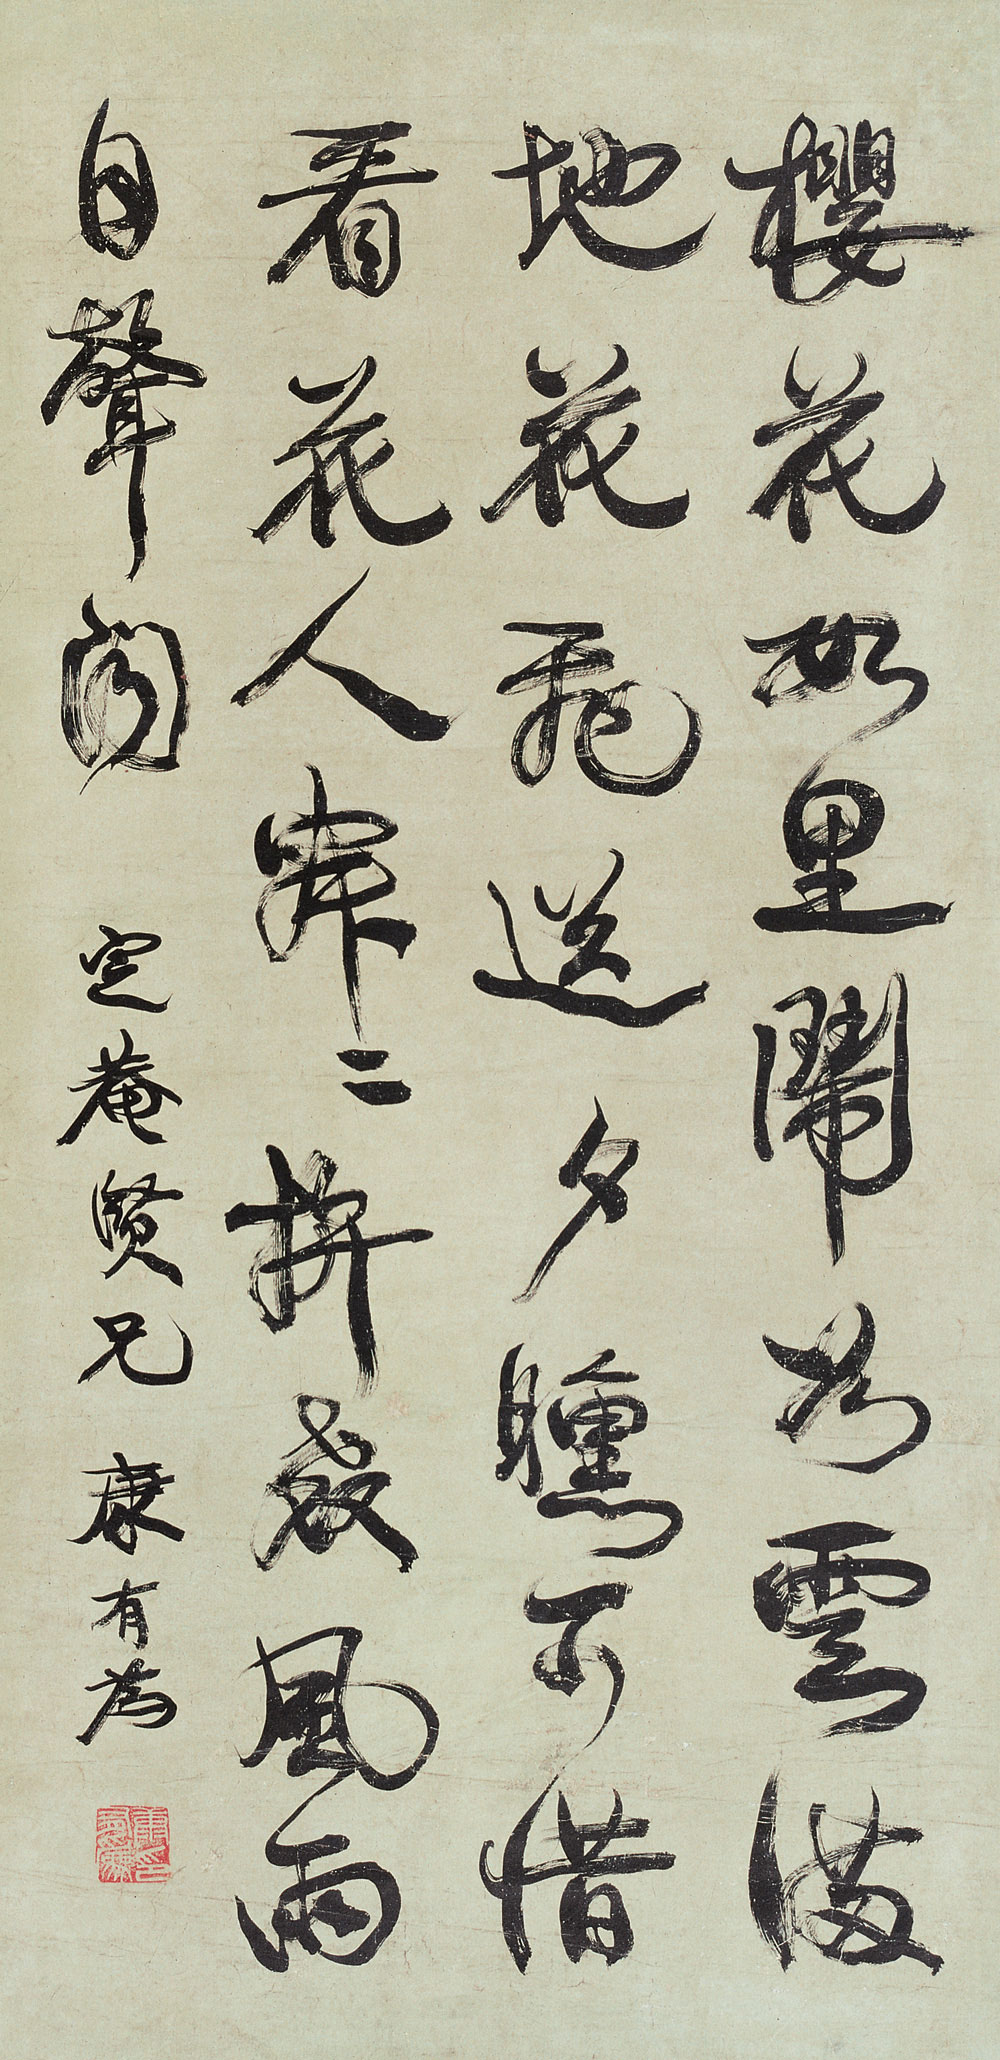 櫻花里鬧雲滿
地花飛送夕曛可惜
看花人寂二拚教風雨
自聲聞 定菴賢兄 康有為
康有為印